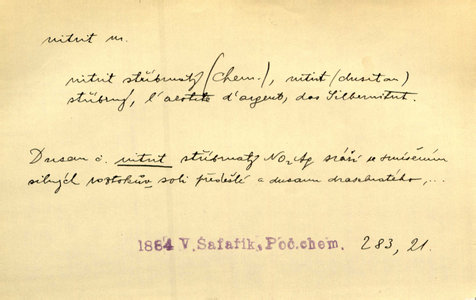 nitrit m.
nitrit stříbrnatý (chem.), nitrit (dusitan)
stříbrný, l'acotite d'argent, das Silbernitrit.
Dusan č. nitrit stříbrnatý NO₂Ag sráží se smíšením
silných roztokův soli předešlé a dusanu draselnatého, ...
1884 V. Šafařík, Poč. chem. 283, 21.